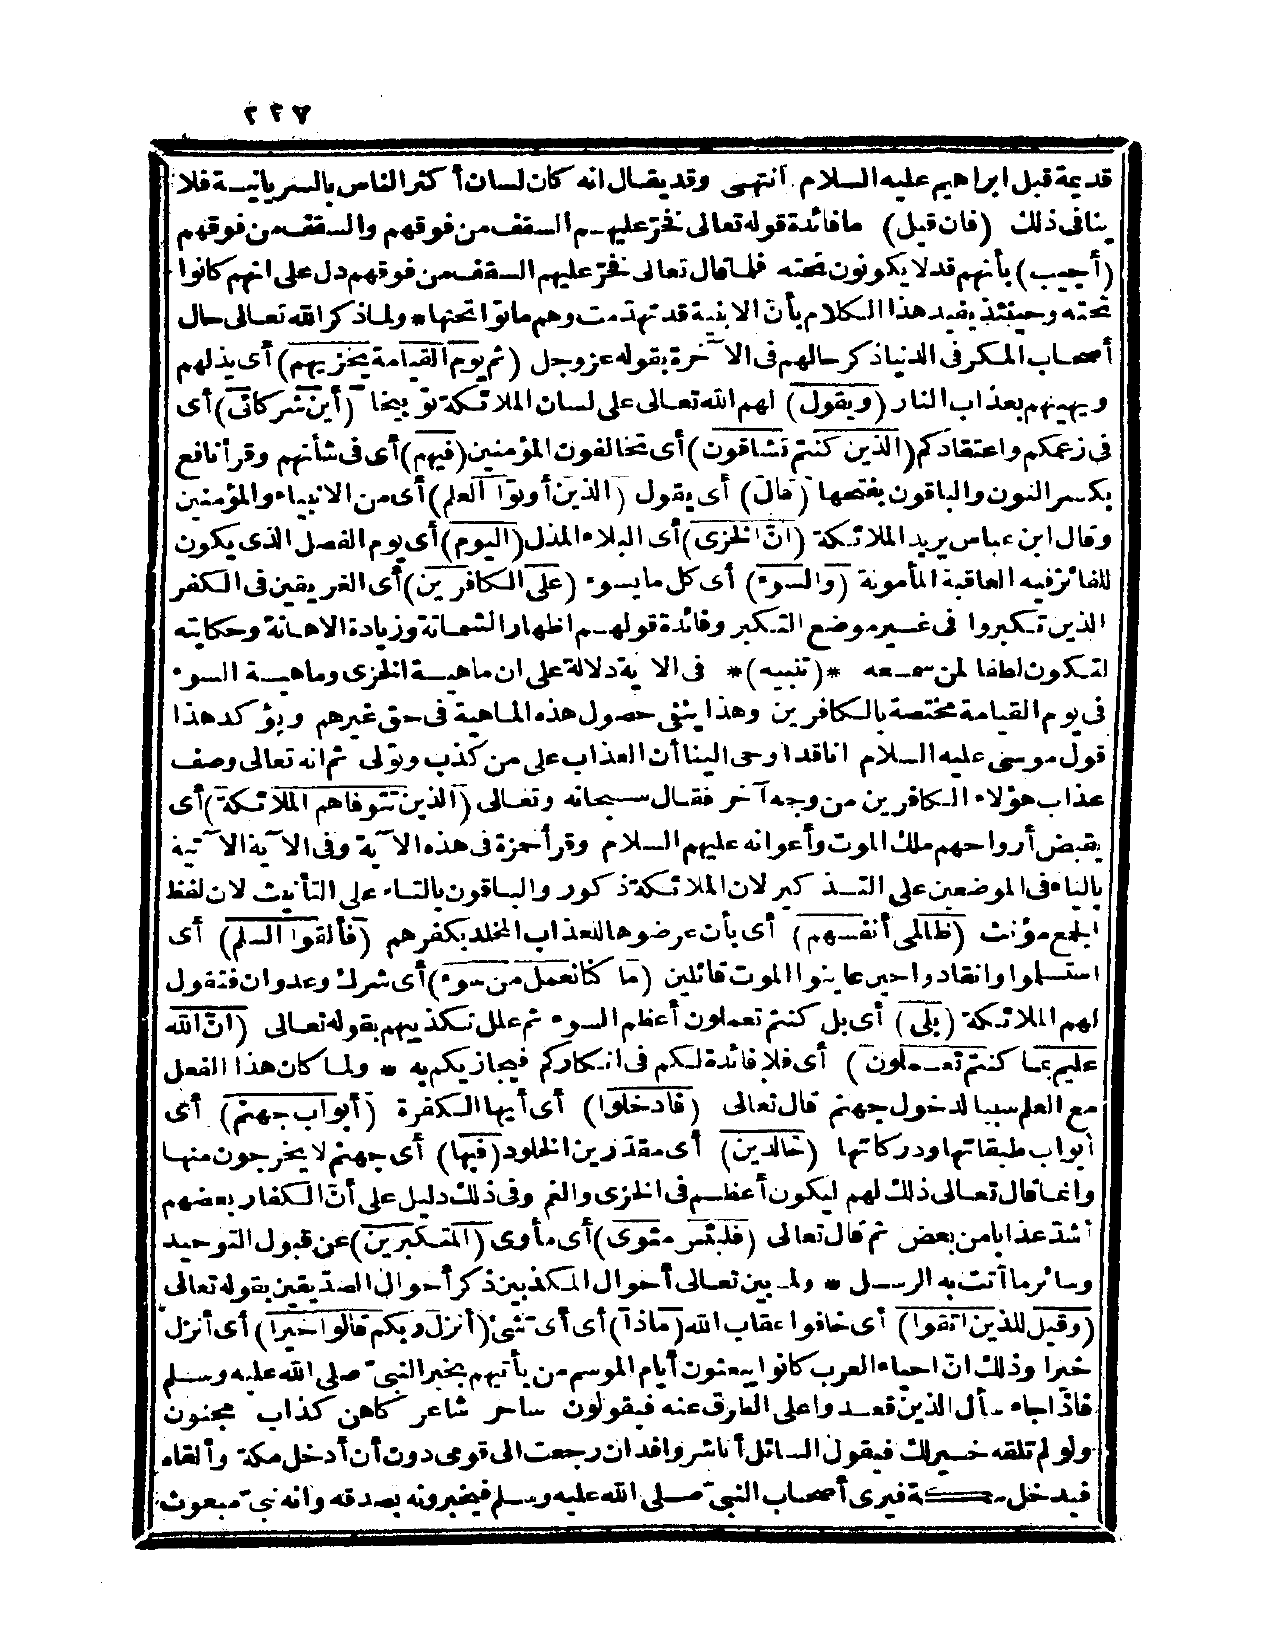 ٢٢٧
قديمة قبل ابراهيم عليه السلام انتهى وقد يقال انه كان لسان أكثر الناس بالسريانية فلا
ينافى ذلك (فان قيل) ما فائدة قوله تعالى فخرّ عليهم السقف من فوقهم والسقف من فوقهم
(أجيب) بأنهم قد لا يكونون تحته فلما قال تعالى فخرّ عليهم السقف من فوقهم دل على انهم كانوا
تحته وحينئذ يفيد هذا الكلام بأنّ الابنية قد تهدّمت وهم ماتوا تحتها * ولما ذكر الله تعالى حال
أصحاب المكر فى الدنيا ذكر حالهم فى الآخرة بقوله عز وجل (ثم يوم القيامة يخزيهم) أى يذلهم
ويهينهم بعذاب النار (ويقول) لهم الله تعالى على لسان الملائكة توبيخا (أين شركائى) أى
فى زعمكم واعتقادكم (الذين كنتم تشاقون) أى تخالفون المؤمنين (فيهم) أى فى شأنهم وقرأ نافع
بكسر النون والباقون بفتحها (قال) أى يقول (الذين أوتوا العلم) أى من الانبياء والمؤمنين
وقال ابن عباس يريد الملائكة (انّ الخزى) أى البلاء المذل (اليوم) أى يوم الفصل الذى يكون
للفائز فيه العاقبة المأمونة (والسوء) أى كل ما يسوء (على الكافرين) أى الغريقين فى الكفر
الذين تكبروا فى غير موضع التكبر وفائدة قولهم اظهار الشماتة وزيادة الاهانة وحكايته
لتكون لطفا لمن سمعه *(تنبيه)* فى الآية دلالة على ان ماهية الخزى وماهية السوء
فى يوم القيامة مختصة بالكافرين وهذا ينفى حصول هذه الماهية فى حق غيرهم ويؤكد هذا
قول موسى عليه السلام انا قد اوحى الينا أن العذاب على من كذب وتولى ثم انه تعالى وصف
عذاب هؤلاء الكافرين من وجه آخر فقال سبحانه وتعالى (الذين تتوفاهم الملائكة) أى
يقبض أرواحهم ملك الموت وأعوانه عليهم السلام وقرأ حمزة فى هذه الآية وفى الآية الآتية
بالياء فى الموضعين على التذكير لان الملائكة ذكور والباقون بالتاء على التأنيث لان لفظ
الجمع مؤنث (ظالمى أنفسهم) أى بأن عرضوها للعذاب المخلد بكفرهم (فألقوا السلم) أى
استسلموا وانقادوا حين عاينوا الموت قائلين (ما كنا نعمل من سوء) أى شرك وعدوان فتقول
لهم الملائكة (بلى) أى بل كنتم تعملون أعظم السوء ثم علل تكذيبهم بقوله تعالى (انّ الله
عليم بما كنتم تعملون) أى فلا فائدة لكم فى انكاركم فيجازيكم به * ولما كان هذا الفعل
مع العلم سببا لدخول جهنم قال تعالى (فادخلوا) أى أيها الكفرة (أبواب جهنم) أى
أبواب طبقاتها ودركاتها (خالدين) أى مقدّرين الخلود (فيها) أى جهنم لا يخرجون منها
وانما قال تعالى ذلك لهم ليكون أعظم فى الخزى والغم وفى ذلك دليل على أنّ الكفار بعضهم
أشدّ عذابا من بعض ثم قال تعالى (فلبئس مثوى) أى مأوى (المتكبرين) عن قبول التوحيد
وسائر ما أتت به الرسل * ولما بين تعالى أحوال المكذبين ذكر أحوال الصدّيقين بقوله تعالى
(وقيل للذين اتقوا) أى خافوا عقاب الله (ماذا) أى أى شئ (أنزل ربكم قالوا خيرا) أى أنزل
خيرا وذلك انّ احياء العرب كانوا يبعثون أيام الموسم من يأتيهم بخبر النبىّ صلى الله عليه وسلم
فاذا جاء سأل الذين قعدوا على الطرق عنه فيقولون ساحر شاعر كاهن كذاب مجنون
ولو لم تلقه خير لك فيقول السائل أنا شر وافد ان رجعت الى قومى دون أن أدخل مكة وألقاه
فيدخل مكة فيرى أصحاب النبىّ صلى الله عليه وسلم فيخبرونه بصدقه وانه نبىّ مبعوث